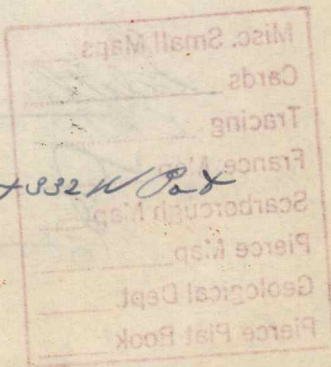 Misc. Small Maps
Cards
Tracing
France Map
+332 W Pat
Scarborough Map
Pierce Map
Geological Dept
Pierce Plat Book